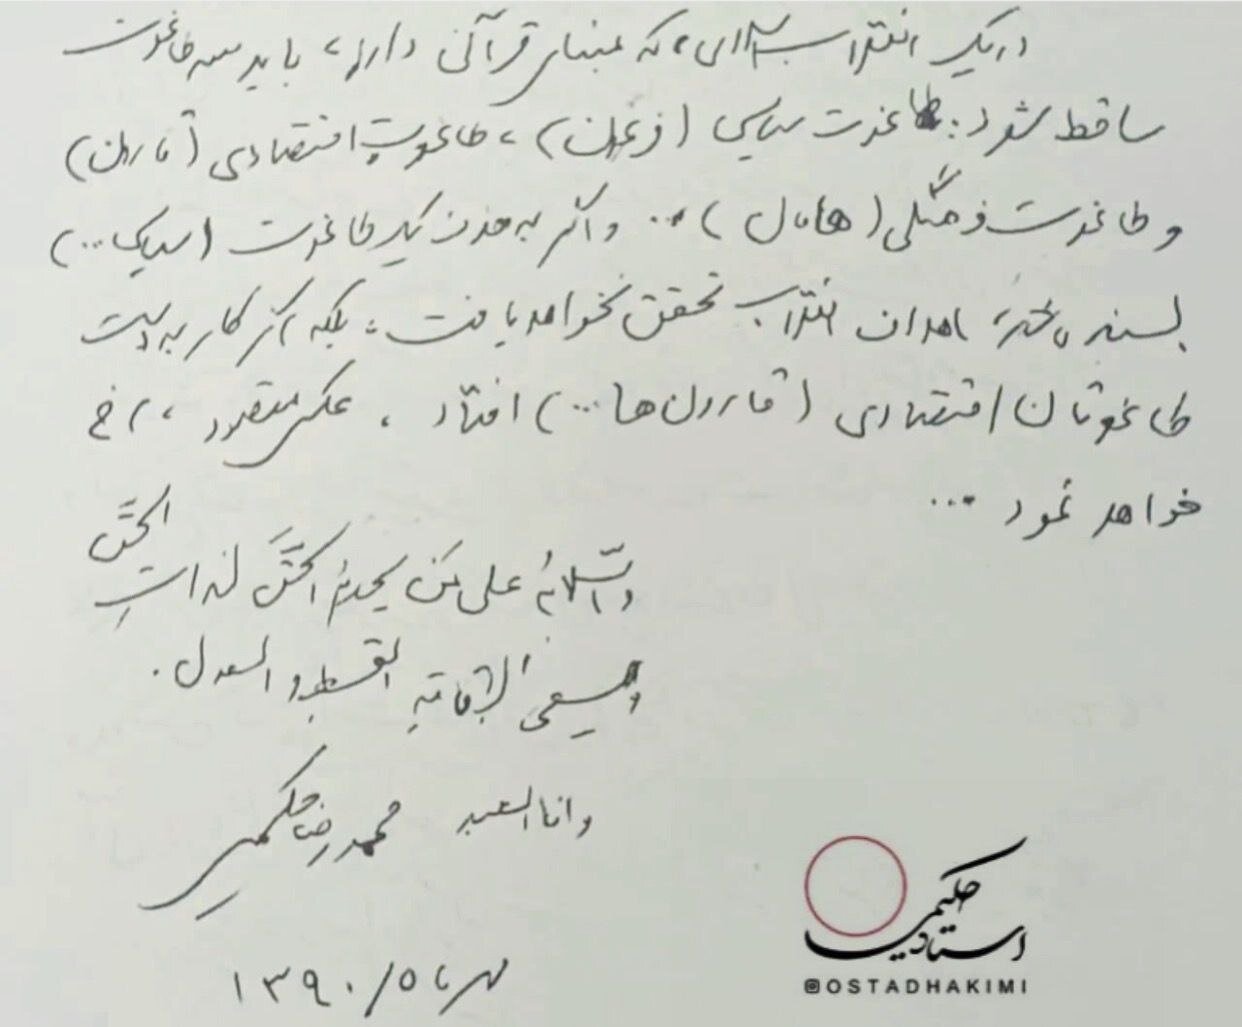 در یک انقلاب اسلامی، که مبنای قرآنی دارد، باید سه طاغوت
ساقط شود: طاغوت سیاسی (فرعون)، طاغوتِ اقتصادی (قارون)
و طاغوت فرهنگی (هامان) ... و اگر به حذف یک طاغوت (سیاسی ...)
بسنده شد، اهداف انقلاب تحقق نخواهد یافت، بلکه اگر کار به دست
طاغوتان اقتصادی (قارون‌ها ...) افتاد، عکس مقصود، رخ
خواهد نمود ...
والسّلامُ علی مَن یخدمُ الحقَّ لذاتِ الحقّ
و یسعی لإقامة القسط و العدل.
و انا العبد محمدرضا حکیمی
مهرماه / ۱۳۹۰
استاد حکیمی
@OSTADHAKIMI